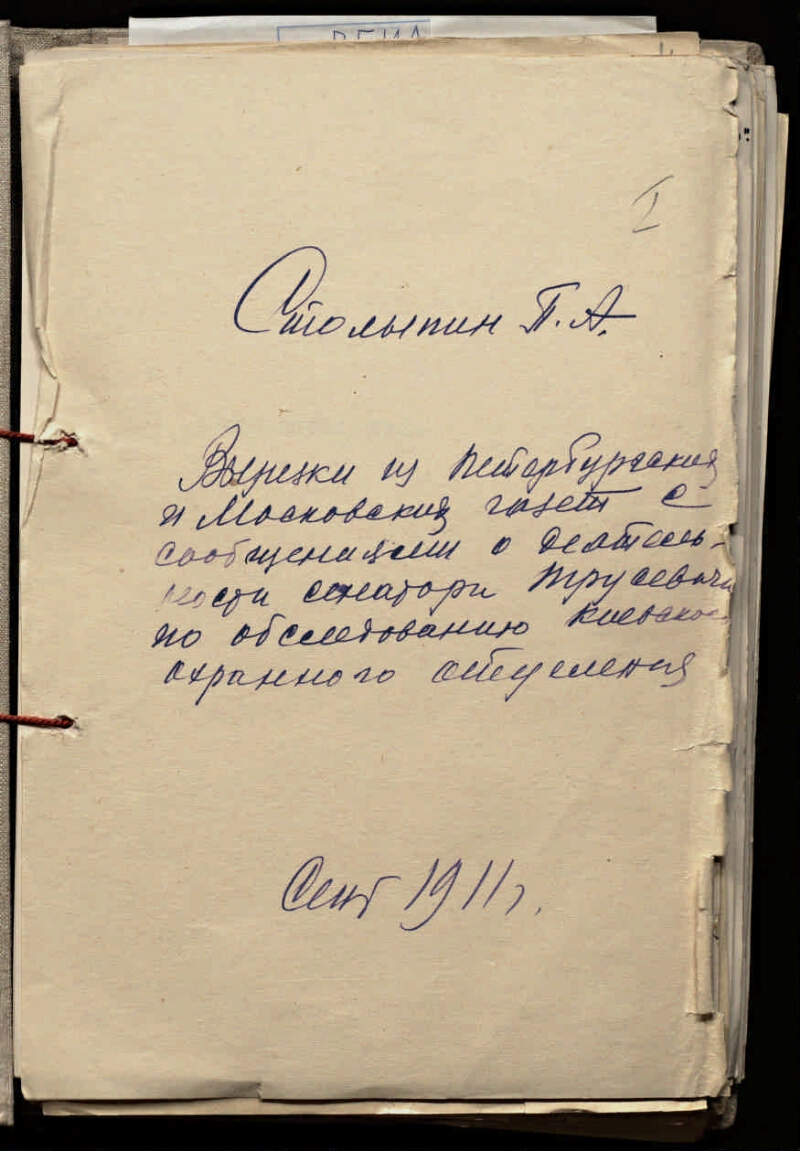 I
Столыпин П. А.
Вырезки из Петербургских
и Московских газет с
сообщениями о деятель-
ности сенатора Трусевича
по обследованию Киевского
охранного отделения
Сент 1911 г.